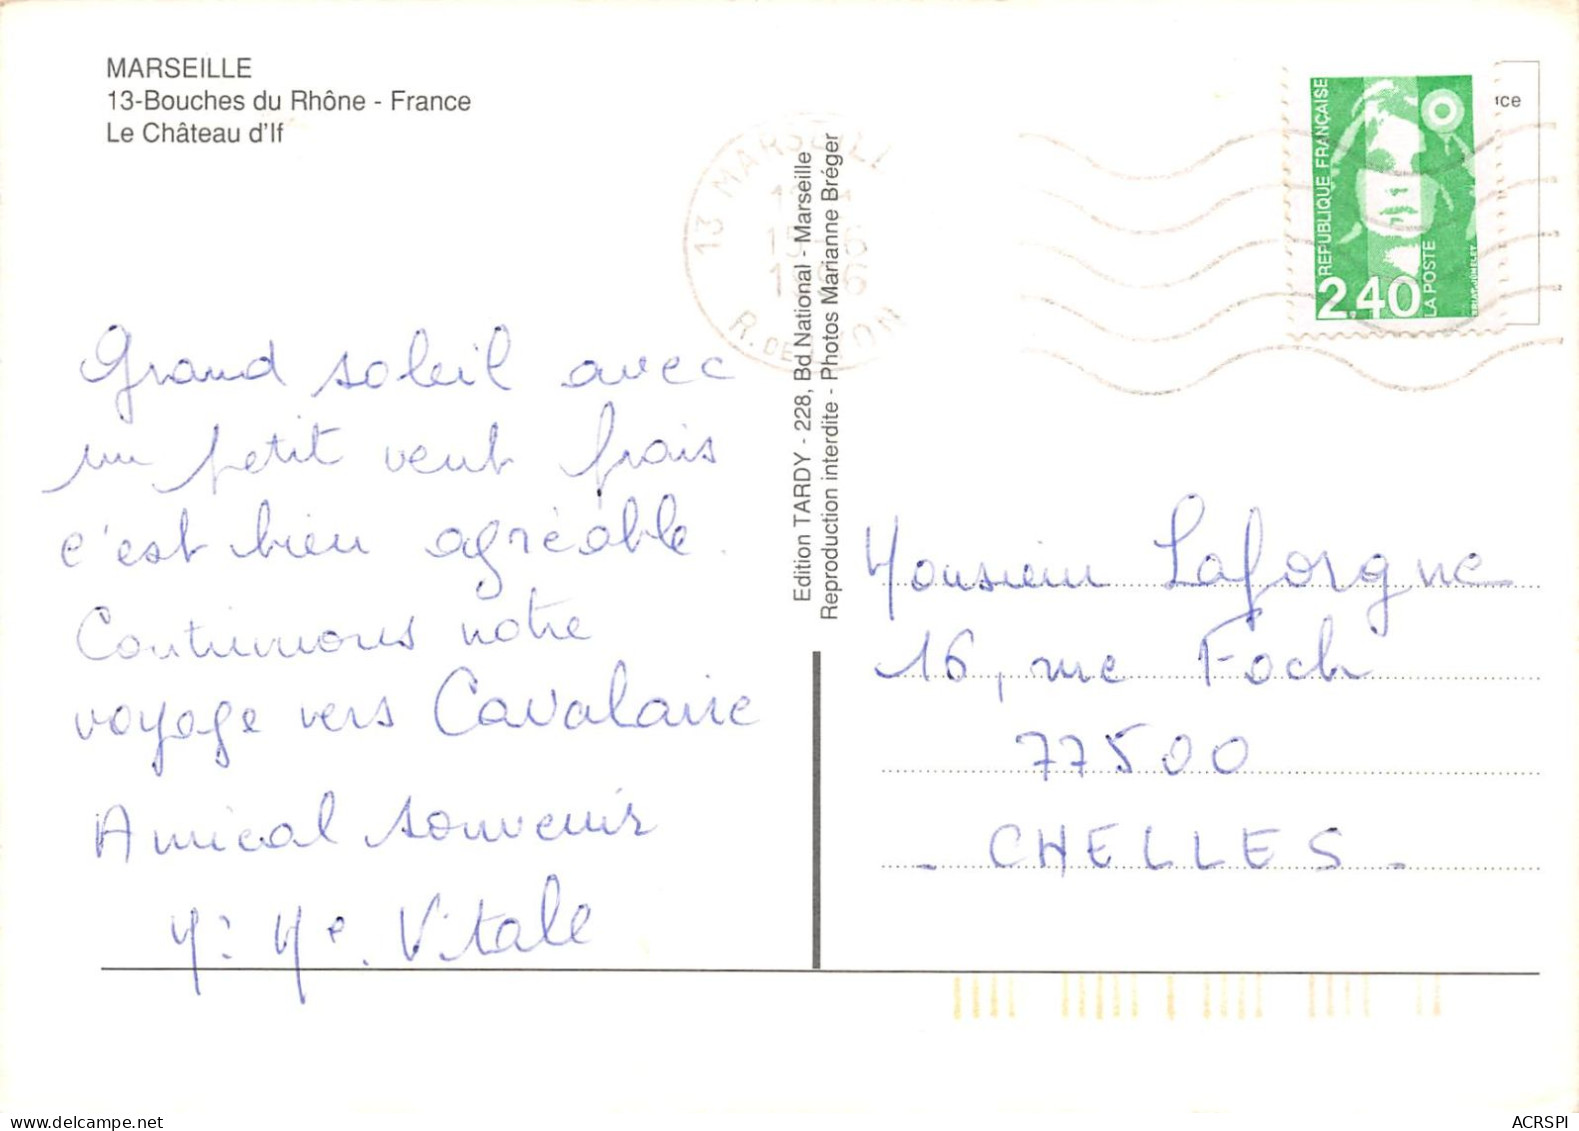 MARSEILLE
13-Bouches du Rhône - France
Le Château d'If
13 MARSEILL
15-6
1996
R. DE LYON
ice
REPUBLIQUE FRANÇAISE
2,40
LA POSTE
Edition TARDY - 228, Bd National - Marseille
Reproduction interdite - Photos Marianne Bréger
Grand soleil avec
un petit vent frais
c'est bien agréable.
Continuons notre
voyage vers Cavalaire
Amical souvenir
M. Me. Vitale
Monsieur Laforgne
16, rue Foch
77500
- CHELLES -
ACRSPI